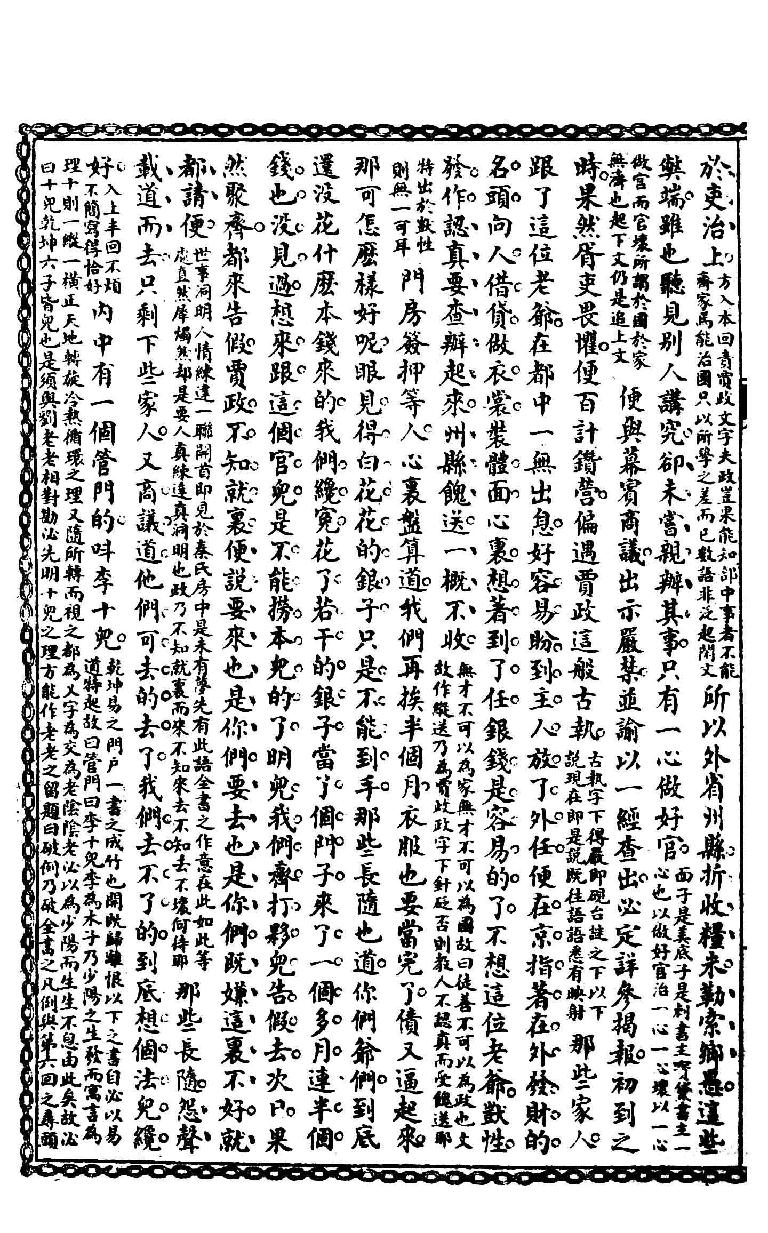 於吏治上方入本回責賈政文字夫政豈果能知部中事者不能齊家焉能治國只以所學之差而已數語非泛起閒文所以外省州縣折收糧米勒索鄉愚這些
獘端雖也聽見別人講究卻未嘗親辦其事只有一心做好官面子是美底子是刺書主書主一心也以做好官治一心一心壞以一心
做官而官壞所於國於家無濟也起下文仍是追上文便與幕賓商議出示嚴禁並諭以一經查出必定詳參揭報初到之
時果然胥吏畏懼便百計鑽營偏遇賈政這般古執古執字下得嚴即硯台謎之下以下說現在即是說既往語語悉有映射那些家人
跟了這位老爺在都中一無出息好容易盼到主人放了外任便在京指著在外發財的
名頭向人借貸做衣裳裝體面心裏想著到了任銀錢是容易的了不想這位老爺獃性
發作認真要查辦起來州縣餽送一概不收無才不可以為家無才不可以為國故曰徒善不可以為政也文故作縱送乃為賈政政字下針砭否則教人不認真而受餽送耶
特出於獃性則無一可耳門房簽押等人心裏盤算道我們再挨半個月衣服也要當完了債又逼起來
那可怎麽樣好呢眼見得白花花的銀子只是不能到手那些長隨也道你們爺們到底
還沒花什麽本錢來的我們纔寃花了若干的銀子當了個門子來了一個多月連半個
錢也沒見過想來跟這個官兒是不能撈本兒的了明兒我們齊打夥兒告假去次日果
然聚齊都來告假賈政不知就裏便說要來也是你們要去也是你們既嫌這裏不好就
都請便世事洞明人情練達一聯開首即見於秦氏房中是未有夢先有此語全書之作意在此如此等處直然犀燭然却是要人真練達真洞明也政乃不知就裏而來不知來去不知去不壞何待耶那些長隨怨聲
載道而去只剩下些家人又商議道他們可去的去了我們去不了的到底想個法兒纔
好入上半回不煩不簡寫得恰好內中有一個管門的呌李十兒乾坤易之門戶一書之成竹也開既歸離恨以下之書自必以易道將起故曰管門曰李十兒李為木子乃少陽之生發而寓言為
理十則一縱一橫正天地轉旋冷熱循環之理又隨所轉而視之都為乂字為交為老陰陰老必以為少陽而生生不息由此矣故泌曰十兒乾坤六子皆兒也是須與劉老老相對勘泌先明十兒之理方能作老老之留題曰破例乃破全書之凡例與第六回之尋頭